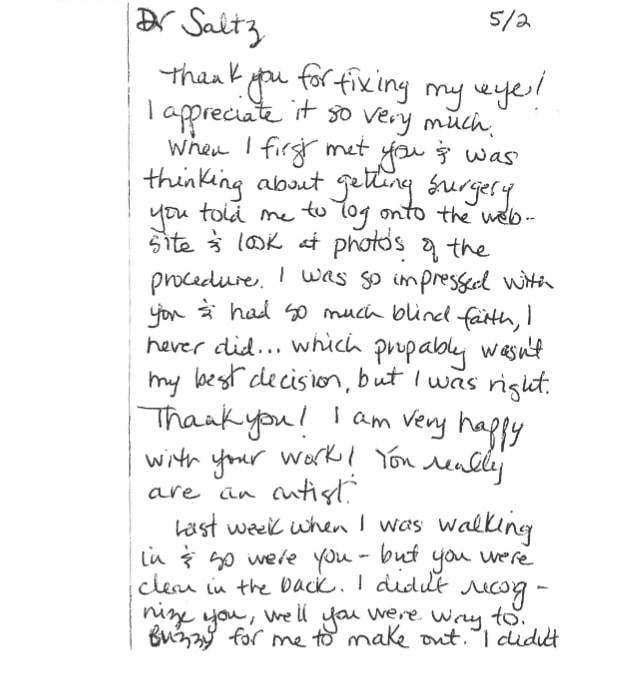 Dr Saltz 5/2
Thank you for fixing my eye!
I appreciate it so very much.
When I first met you & was
thinking about getting surgery
you told me to log onto the web-
site & look at photos of the
procedure. I was so impressed with
you & had so much blind faith, I
never did... which propably wasn't
my best decision, but I was right.
Thank you! I am very happy
with your work! You really
are an artist.
Last week when I was walking
in & so were you - but you were
clear in the back. I didn't recog-
nize you, well you were way to.
Buzzy for me to make out. I didn't